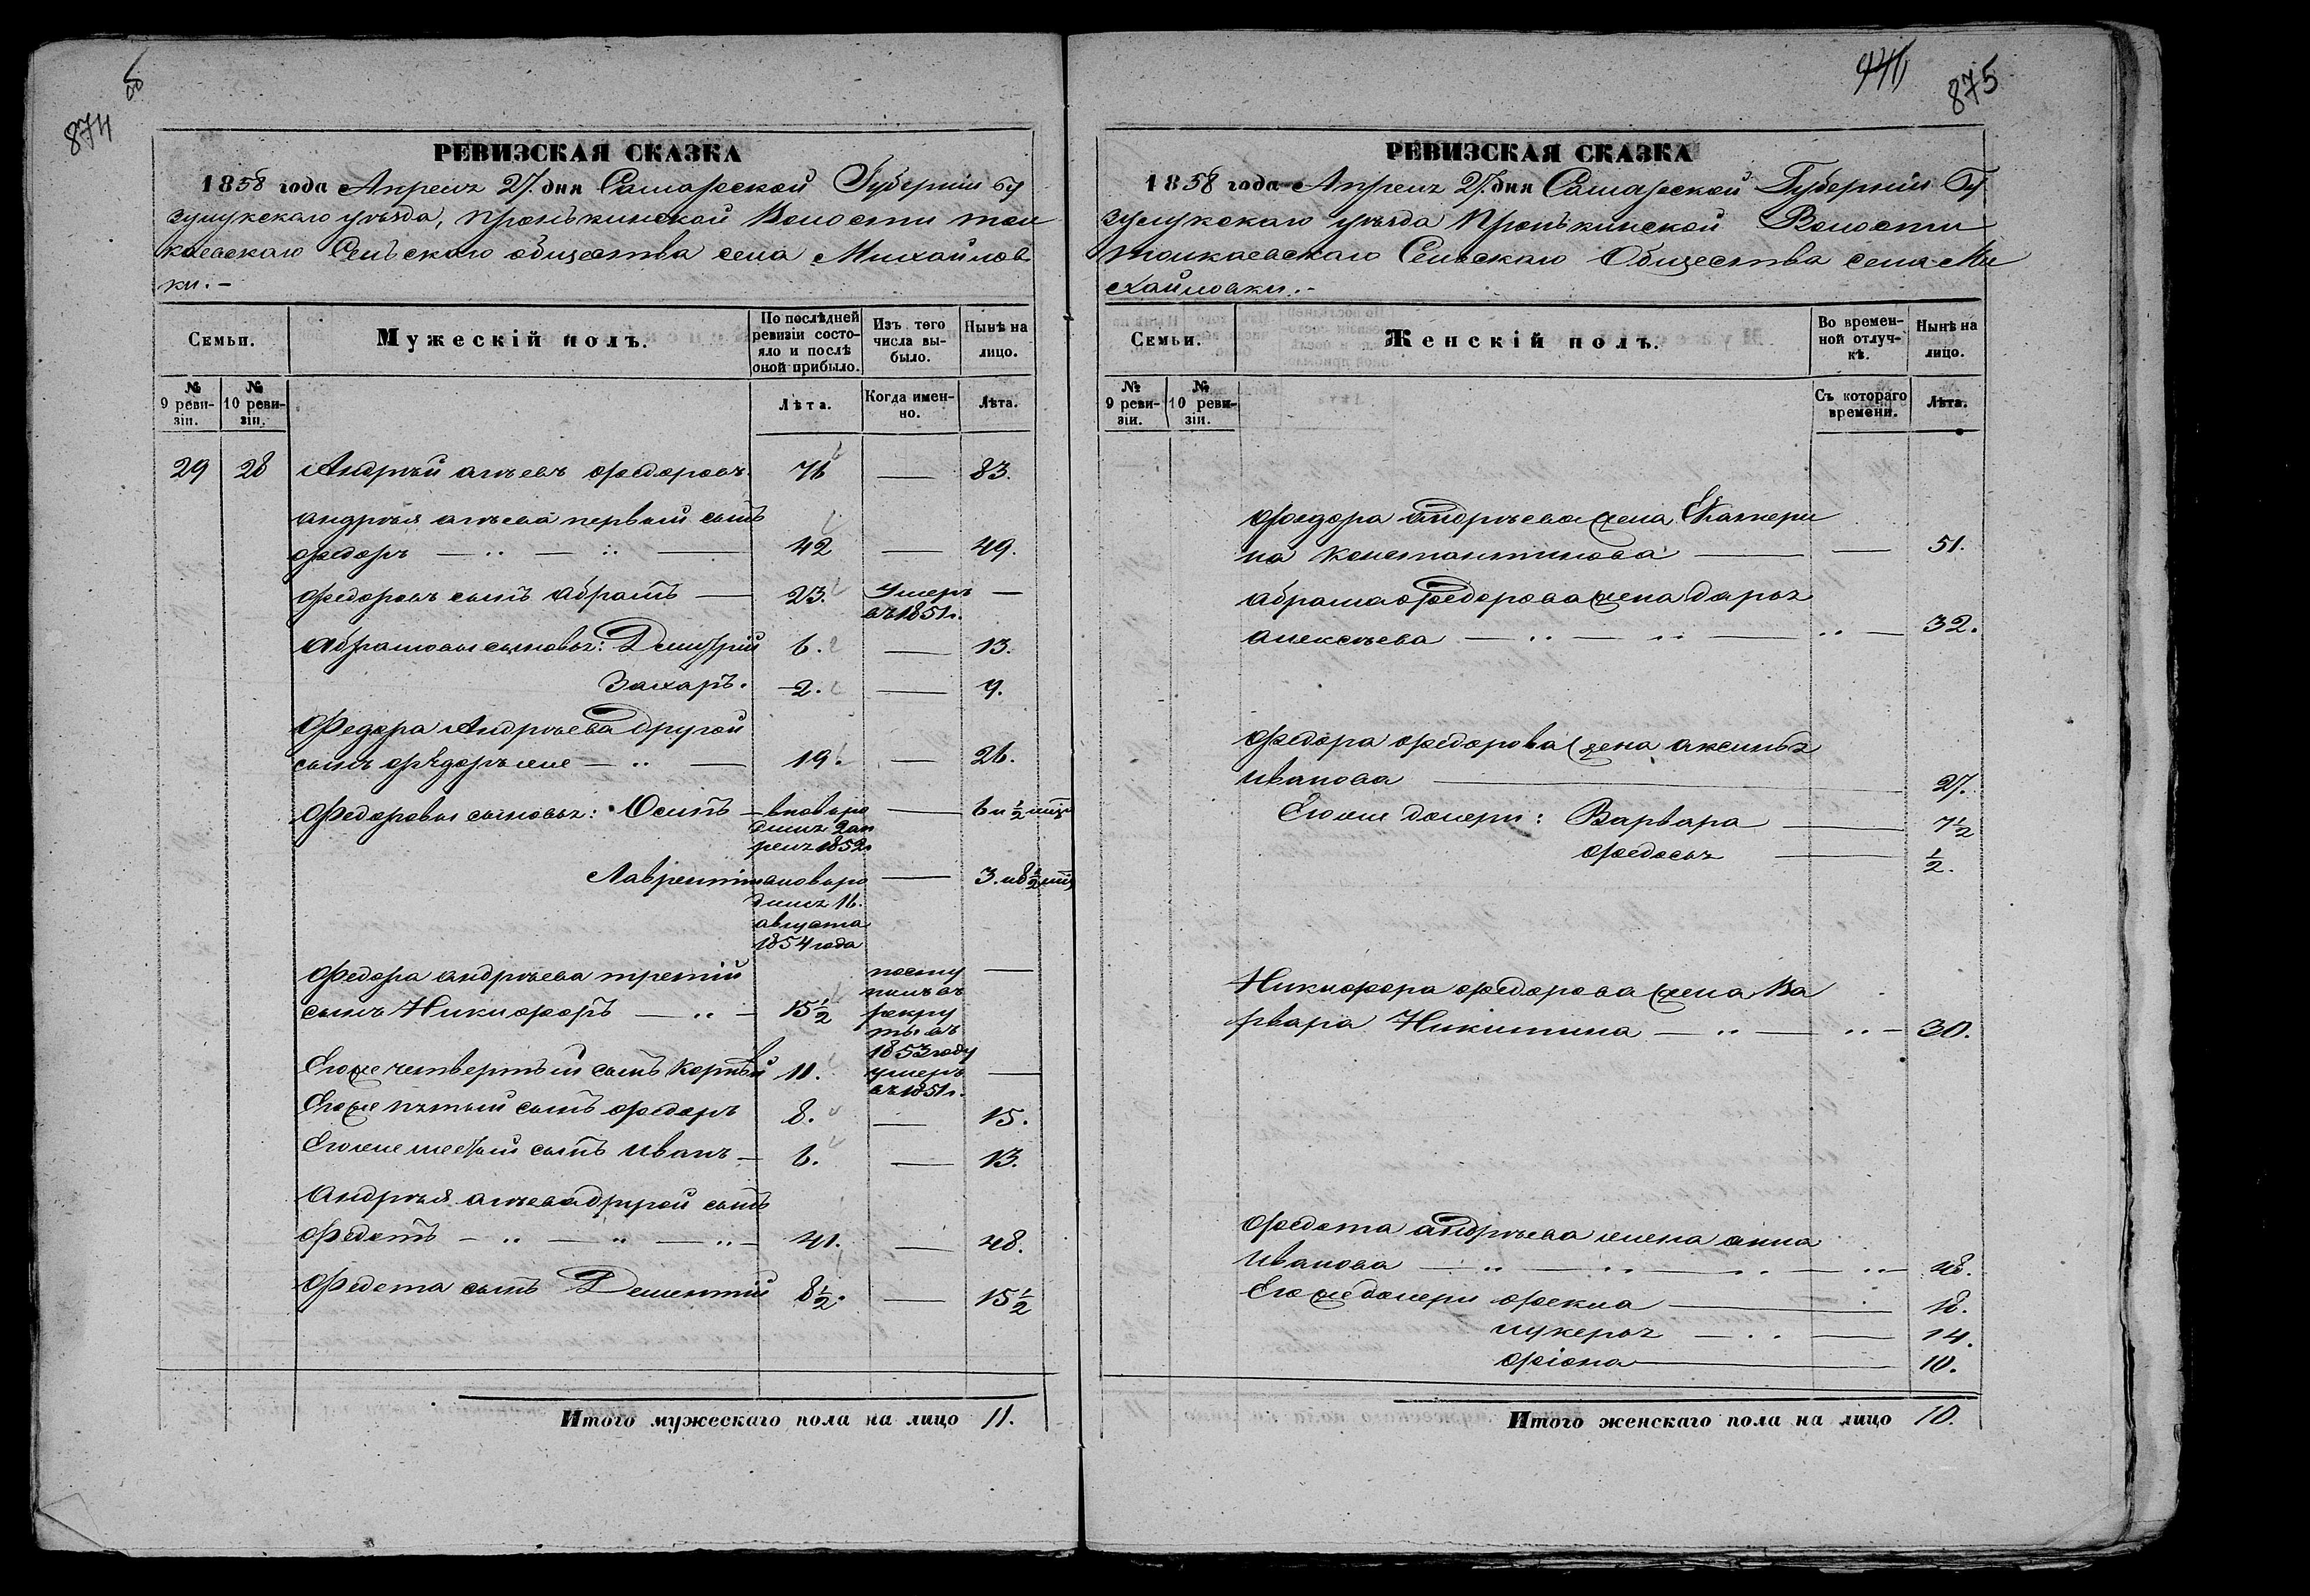 874
об
РЕВИЗСКАЯ СКАЗКА
1858 года Апреля 27. дня Самарской Губернии Бу
зулукскаго уѣзда, Пронькинской Волости тол
каевскаго Сельскаго общества села Михайлов
ки. -
Семьи.
Мужескій полъ.
По послѣдней ревизіи состояло и послѣ оной прибыло.
Изъ того числа выбыло.
Нынѣ на лицо.
№ 9 ревизіи.
№ 10 ревизіи.
Лѣта.
Когда именно.
Лѣта.
29 28 Андрѣй Федоровъ. 76 — 83.
Андрѣя первый сынъ
Федоръ — 42 — 49.
Федоровъ сынъ Абрамъ — 23. Умеръ въ 1851 г. —
Абрамовы сыновья: Дмитрій 6. — 13.
Захаръ. 2. — 9.
Федора Андрѣева другой
сынъ Федоръ же — 19. — 26.
Федоровы сыновья: Осипъ — вновь родился 2 апреля 1852 — 6 и ½ мѣся
Лаврентій вновь родился 16. августа 1854 года — 3. и 8½ мѣс
Федора Андрѣева третій
сынъ Никифоръ — 15½ поступилъ въ рекруты въ 1853 году —
Его же четвертый сынъ 11. умеръ въ 1851 г. —
Его же пятый сынъ Федоръ 8. — 15.
Его же шестый сынъ Иванъ — 6. — 13.
Андрѣя другой сынъ
Федотъ — 41. — 48.
Федота сынъ Дементій 8½. — 15½
Итого мужескаго пола на лицо 11.
875
РЕВИЗСКАЯ СКАЗКА
1858 года Апреля 27. дня Самарской Губернии Бу
зулукскаго уѣзда Пронькинской Волости
толкаевскаго Сельскаго Общества села Ми
хайловки. -
Семьи.
Женскій полъ.
Во временной отлучкѣ.
Нынѣ на лицо.
№ 9 ревизіи.
№ 10 ревизіи.
Съ котораго времени.
Лѣта.
Федора Андрѣева жена Екатери
на Константинова — — 51.
Абрама Федорова жена Дарья
Алексѣева — 32.
Федора Федорова жена Аксинья
Иванова — 27.
Его же дочери: Варвара — 7½
Федосья — ½.
Никифора Федорова жена Ва
рвара Никитина — 30.
Федота Андрѣева жена Анна
Иванова — 48.
Его же дочери Фекла — 18.
Лукерья — 14.
Фіона — 10.
Итого женскаго пола на лицо 10.